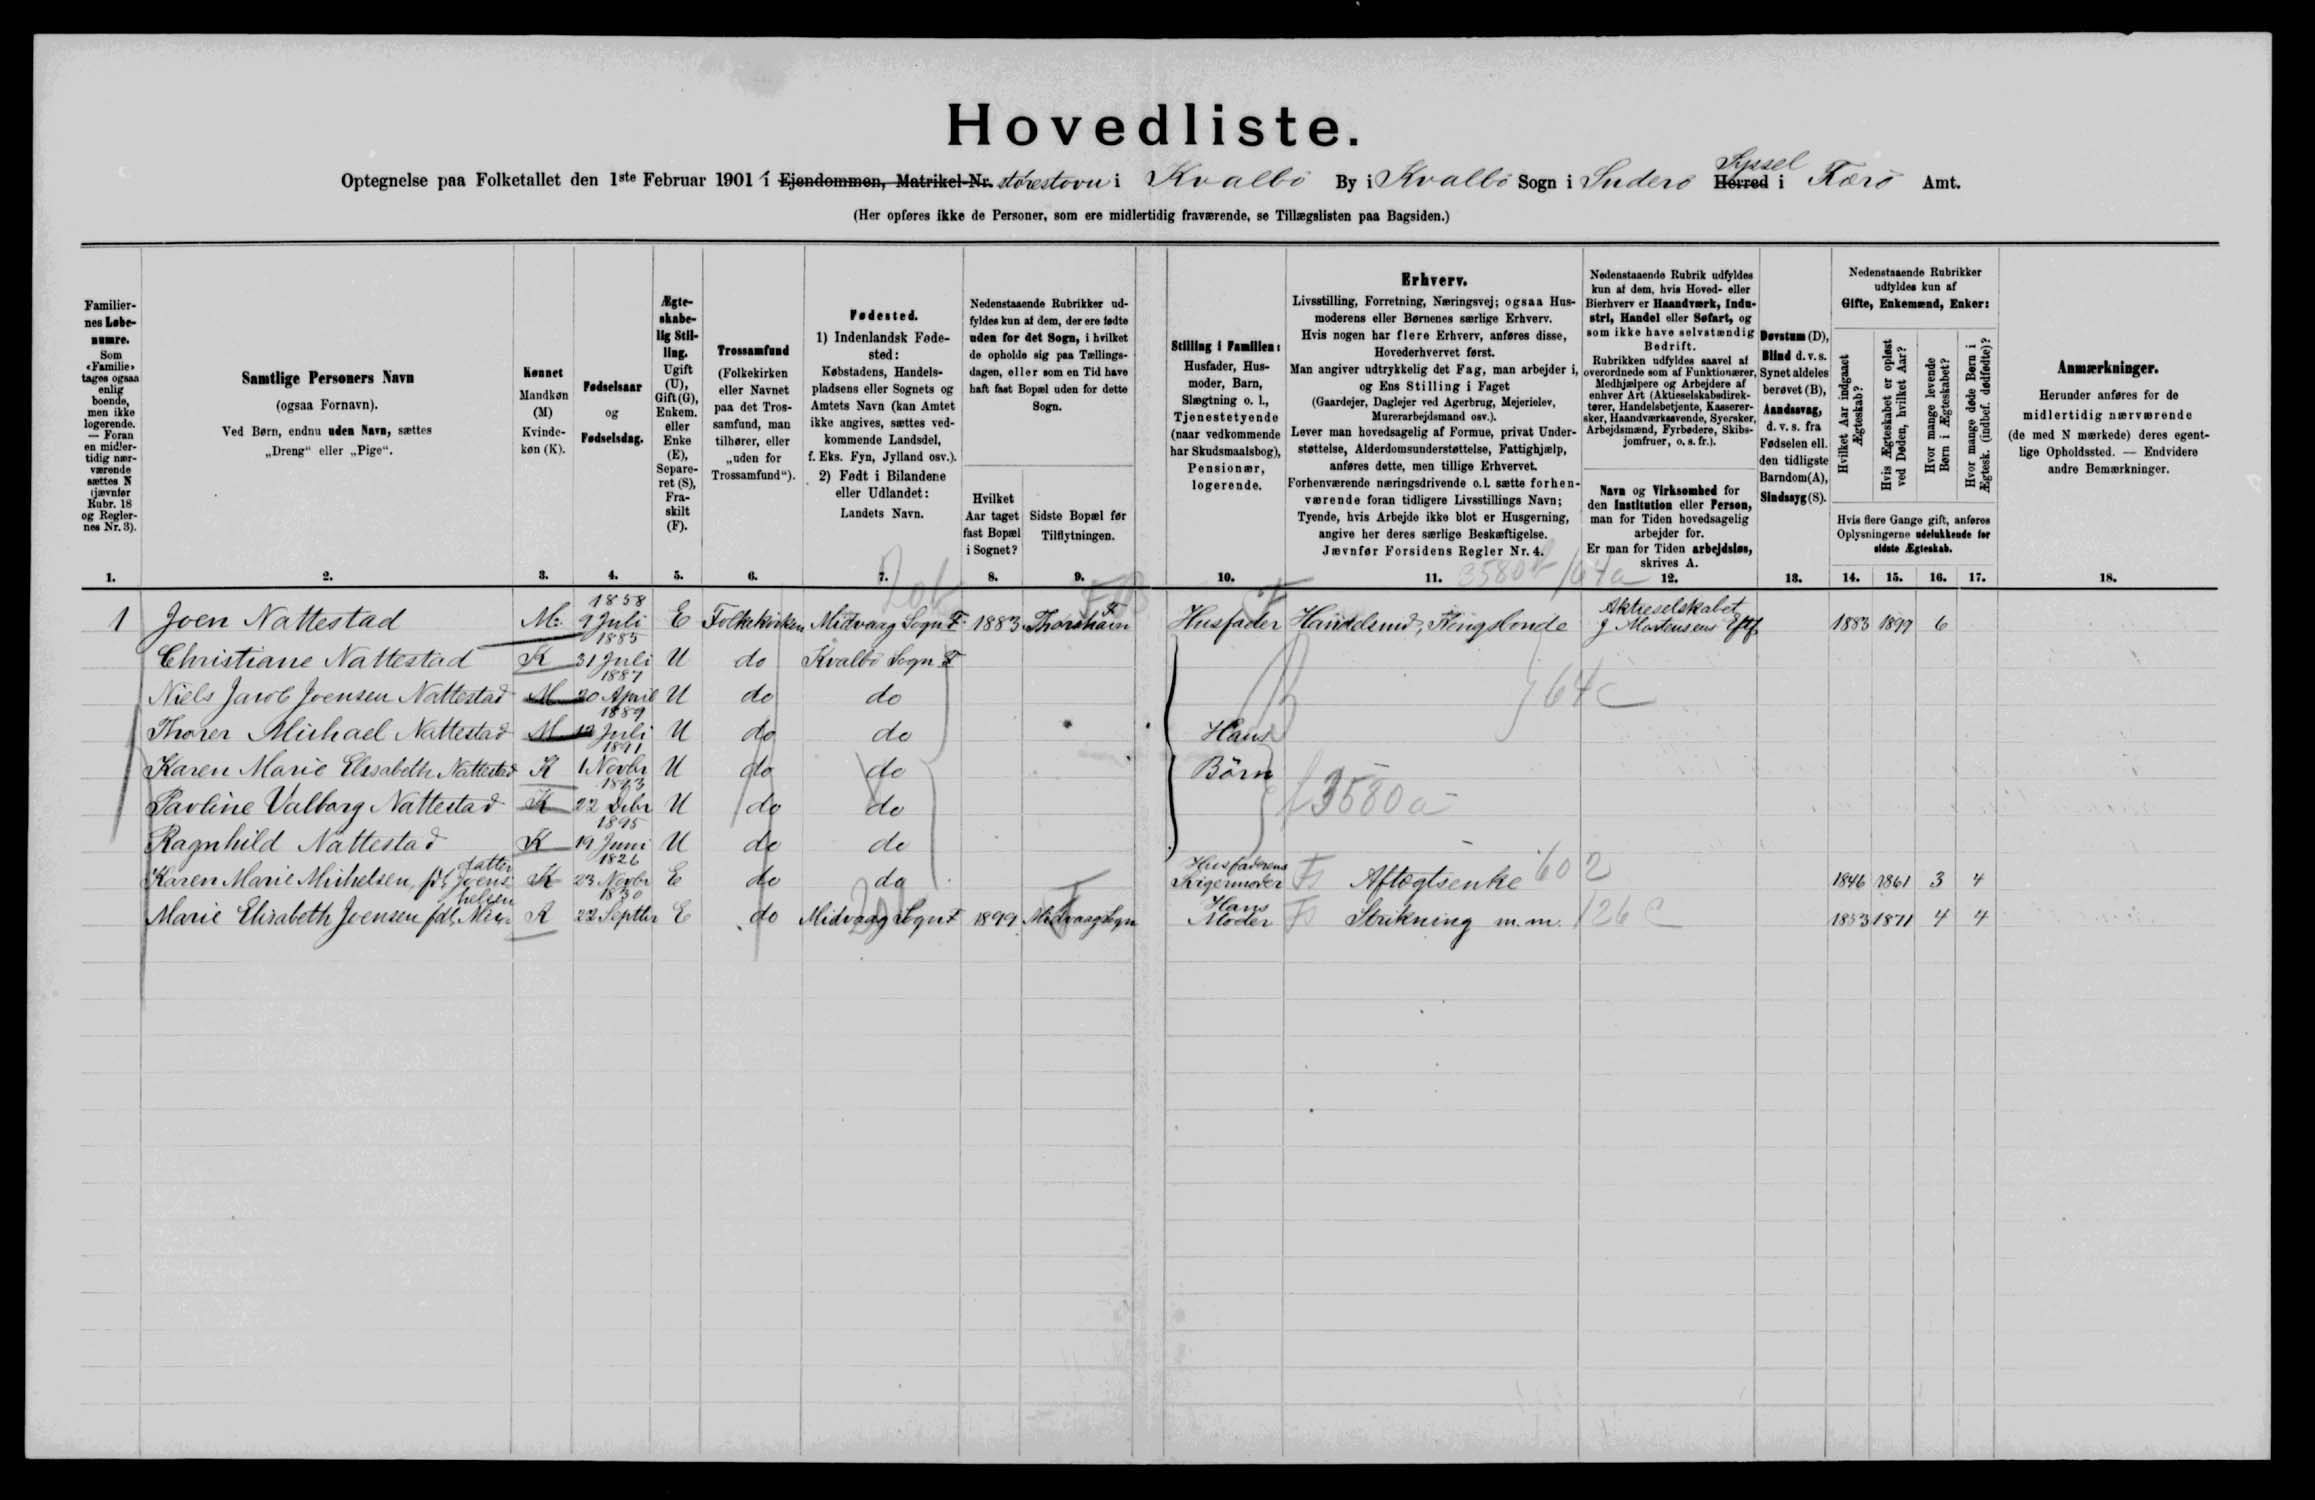 Hovedliste.
Optegnelse paa Folketallet den 1ste Februar 1901 i Ejendommen, Matrikel-Nr. størestovu i Kvalbø By i Kvalbø Sogn i Suderø Herred Syssel i Færø Amt.
(Her opføres ikke de Personer, som ere midlertidig fraværende, se Tillægslisten paa Bagsiden.)
Familiernes Løbenumre. Som «Familie» tages ogsaa enlig boende, men ikke logerende. — Foran en midlertidig nærværende sættes N (jævnfør Rubr. 18 og Reglernes Nr. 3).
Samtlige Personers Navn (ogsaa Fornavn). Ved Børn, endnu uden Navn, sættes „Dreng“ eller „Pige“.
Kønnet Mandkøn (M) Kvindekøn (K).
Fødselsaar og Fødselsdag.
Ægteskabelig Stilling. Ugift (U), Gift (G), Enkem. eller Enke (E), Separeret (S), Fraskilt (F).
Trossamfund (Folkekirken eller Navnet paa det Trossamfund, man tilhører, eller „uden for Trossamfund“).
Fødested. 1) Indenlandsk Fødested: Købstadens, Handelspladsens eller Sognets og Amtets Navn (kan Amtet ikke angives, sættes vedkommende Landsdel, f. Eks. Fyn, Jylland osv.). 2) Født i Bilandene eller Udlandet: Landets Navn.
Nedenstaaende Rubrikker udfyldes kun af dem, der ere fødte uden for det Sogn, i hvilket de opholde sig paa Tællingsdagen, eller som en Tid have haft fast Bopæl uden for dette Sogn.
Hvilket Aar taget fast Bopæl i Sognet?
Sidste Bopæl før Tilflytningen.
Stilling i Familien: Husfader, Husmoder, Barn, Slægtning o. l., Tjenestetyende (naar vedkommende har Skudsmaalsbog), Pensionær, logerende.
Erhverv.
Livsstilling, Forretning, Næringsvej; ogsaa Husmoderens eller Børnenes særlige Erhverv.
Hvis nogen har flere Erhverv, anføres disse, Hovederhvervet først.
Man angiver udtrykkelig det Fag, man arbejder i, og Ens Stilling i Faget (Gaardejer, Daglejer ved Agerbrug, Mejerielev, Murerarbejdsmand osv.).
Lever man hovedsagelig af Formue, privat Understøttelse, Alderdomsunderstøttelse, Fattighjælp, anføres dette, men tillige Erhvervet.
Forhenværende næringsdrivende o. l. sætte forhenværende foran tidligere Livsstillings Navn;
Tyende, hvis Arbejde ikke blot er Husgerning, angive her deres særlige Beskæftigelse.
Jævnfør Forsidens Regler Nr. 4.
Nedenstaaende Rubrik udfyldes kun af dem, hvis Hoved- eller Bierhverv er Haandværk, Industri, Handel eller Søfart, og som ikke have selvstændig Bedrift.
Rubrikken udfyldes saavel af overordnede som af Funktionærer, Medhjælpere og Arbejdere af enhver Art (Aktieselskabsdirektører, Handelsbetjente, Kasserersker, Haandværkssvende, Syersker, Arbejdsmænd, Fyrbødere, Skibsjomfruer, o. s. fr.).
Navn og Virksomhed for den Institution eller Person, man for Tiden hovedsagelig arbejder for.
Er man for Tiden arbejdsløs, skrives A.
Døvstum (D), Blind d. v. s. Synet aldeles berøvet (B), Aandssvag, d. v. s. fra Fødselen ell. den tidligste Barndom (A), Sindssyg (S).
Nedenstaaende Rubrikker udfyldes kun af Gifte, Enkemænd, Enker:
Hvilket Aar indgaaet Ægteskab?
Hvis Ægteskabet er opløst ved Døden, hvilket Aar?
Hvor mange levende Børn i Ægteskabet?
Hvor mange døde Børn i Ægtesk. (indbef. dødfødte)?
Hvis flere Gange gift, anføres Oplysningerne udelukkende for sidste Ægteskab.
Anmærkninger. Herunder anføres for de midlertidig nærværende (de med N mærkede) deres egentlige Opholdssted. — Endvidere andre Bemærkninger.
1. 2. 3. 4. 5. 6. 7. 8. 9. 10. 11. 12. 13. 14. 15. 16. 17. 18.
3580b 64a
1 Joen Nattestad M. 1858 9 Juli E Folkekirken Midvaag Sogn F 1883 Thorshavn F Husfader Handelsmd, Kongsbonde Aktieselskabet J Mortensens Eftf 1883 1899 6
Christiane Nattestad K 1885 31 Juli U do Kvalbø Sogn F
Niels Jacob Joensen Nattestad M 1887 20 April U do do 64c
Thorer Michael Nattestad M 1889 12 Juli U do do Hans
Karen Marie Elisabeth Nattestad K 1891 1 Novbr U do do Børn
Pavline Valborg Nattestad K 1893 22 Debr U do do 3580a
Ragnhild Nattestad K 1895 19 Juni U do do
Karen Marie Michelsen, fdt Joensdatter K 1826 23 Novbr E do do Husfaderens Svigermoder Aftægtsenke 602 1846 1861 3 4
Marie Elisabeth Joensen fdt Michelsen K 1830 22 Septbr E do Midvaag Sogn F 1899 Midvaag Sogn Hans Moder Strikning m.m. 126c 1853 1871 4 4